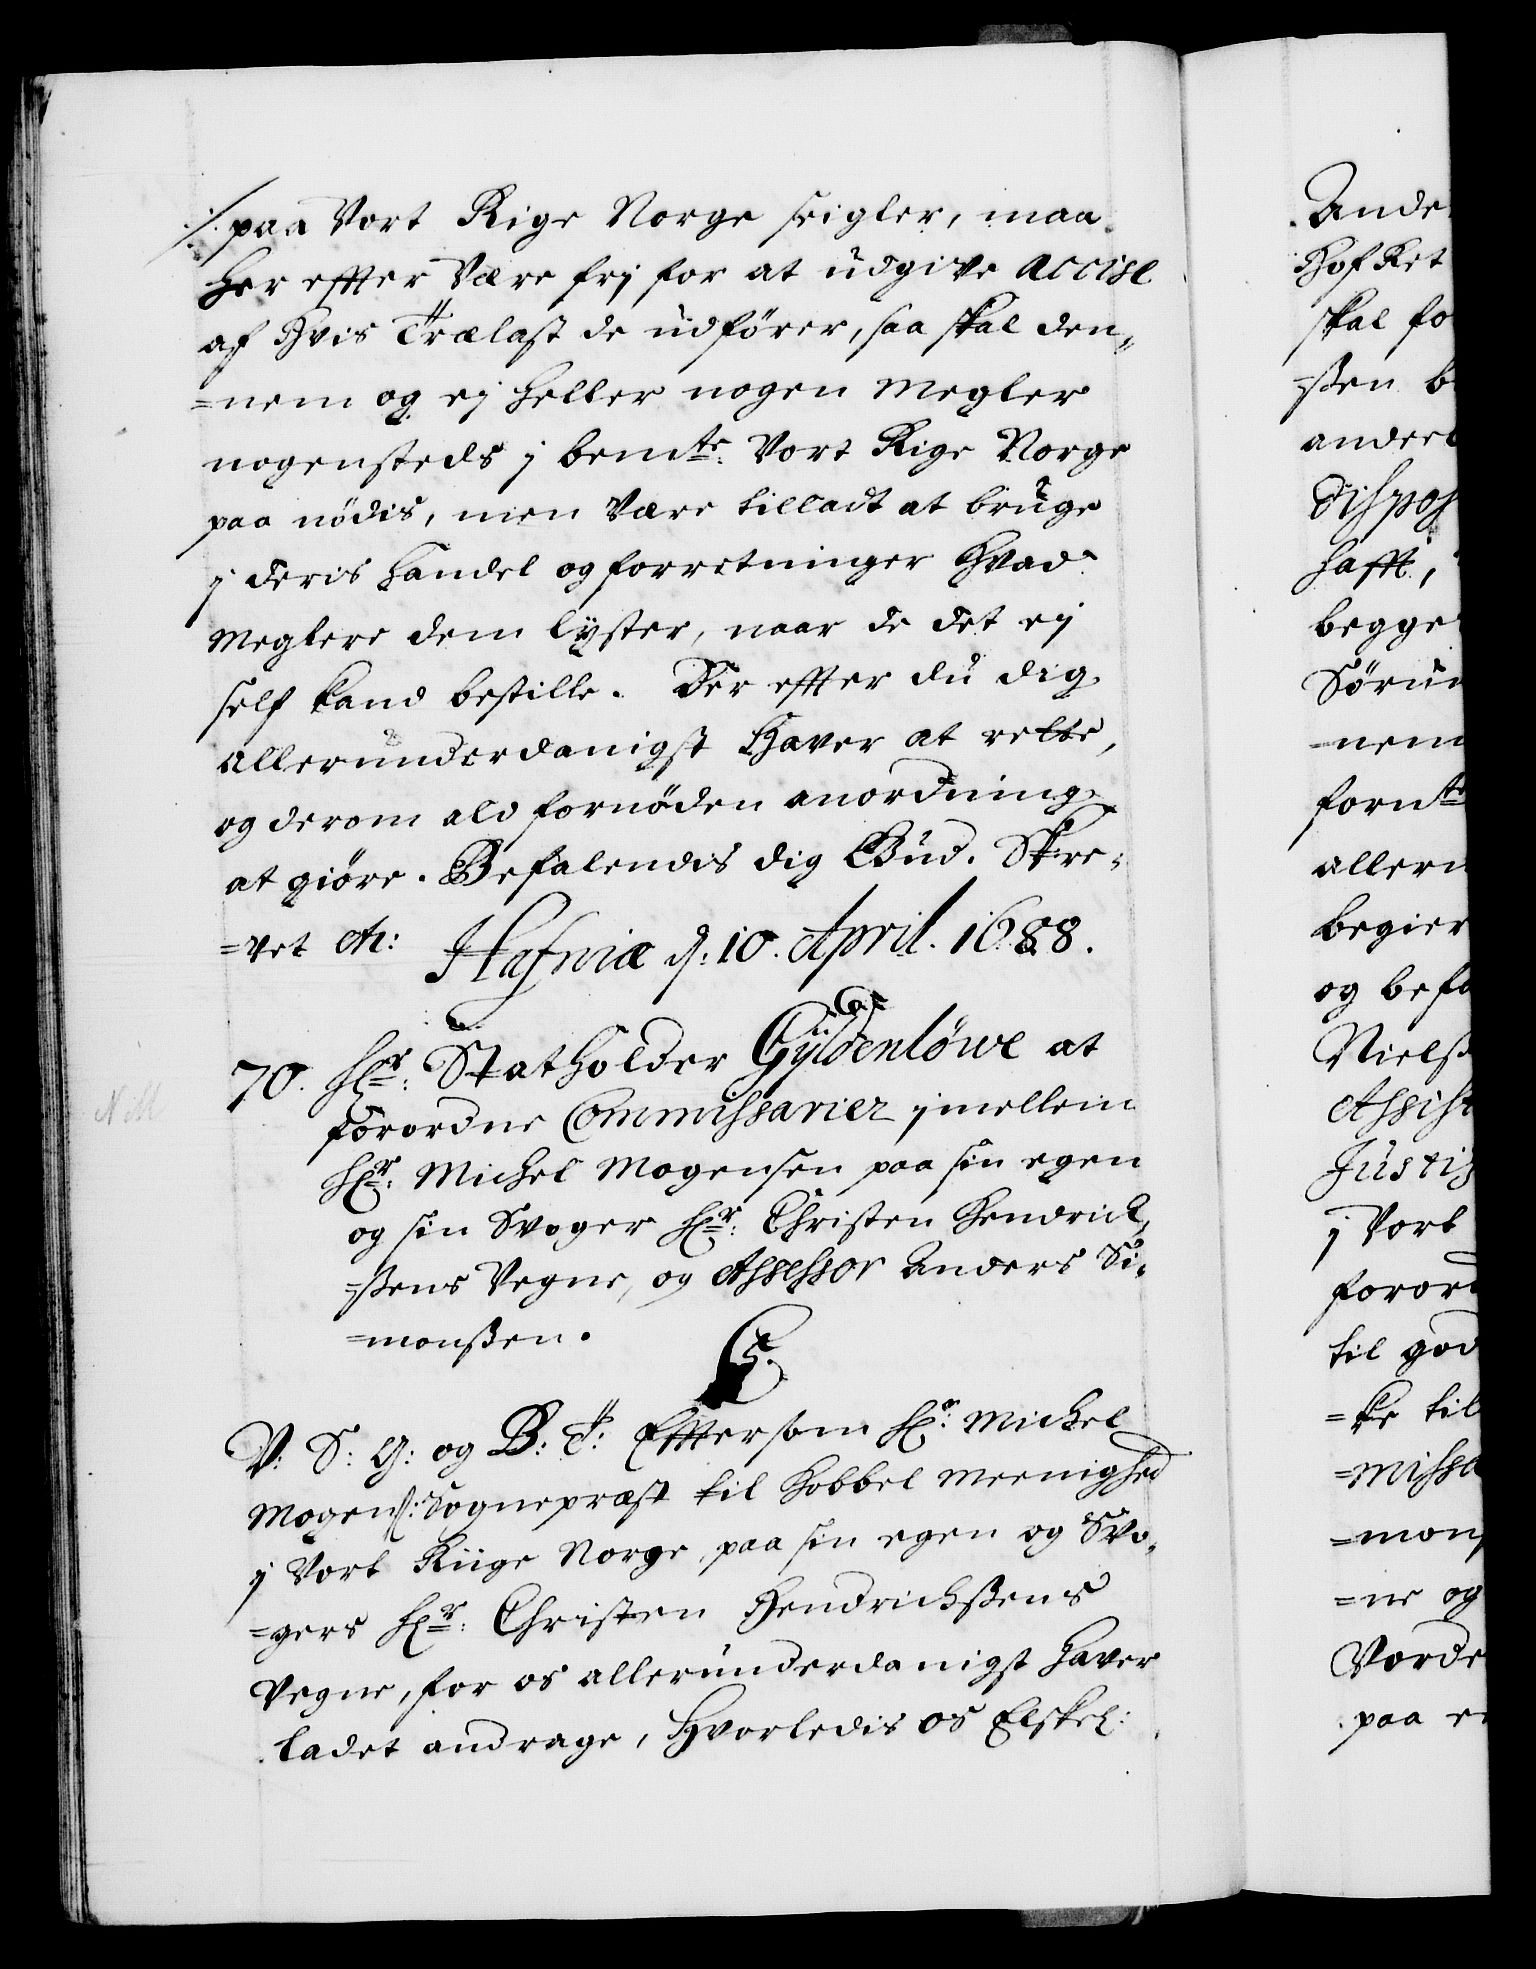 paa Vort Rige Norge seigler, maa
her effter være frj for at udgive Accise
af hvis Trælast de udfører, saa skal den,,
=nem og ej heller nogen Megler
nogensteds j bemte Vort Rige Norge
paa nødis, men være tilladt at bruge
j deris Handel og forretninger hvad
Meglere dem lyster, naar de det ej
self kand bestille. Der effter du dig
allerunderdanigst haver at rette,
og derom ald fornøden anordning
at giøre. Befalendis dig Gud. Skre,
=vet etc: Hafniæ d: 10. April. 1688.
70. Hr: Statholder Gyldenløwe at
forordne Commissarier jmellem
Hr: Michel Mogensen paa sin egen
og sin Svoger Hr: Christen Hendrick,
=ßens Vegne, og Assessor Anders Si,
=monßen.
C5.
V: S: G: og B: T: Effter som Hr: Michel
Mogens: Sognepræst til Hobbel Meenighed
j Vort Riige Norge, paa sin egen og Svo,
=gers Hr: Christen Hendrickßens
Vegne, for os allerunderdanigst haver
ladet andrage, hvorledis os Elskel:
Ande
Hof Ret
skal fo
=ßen b
andeel
dispos
hafft,
begge
Sørun
=nem
fornte
allern
begier
og befa
Nielsß
Assist
Justiz
j Vort
foror
til god
=ke til
=missa
=mons
=ne og
Vorde
paa e